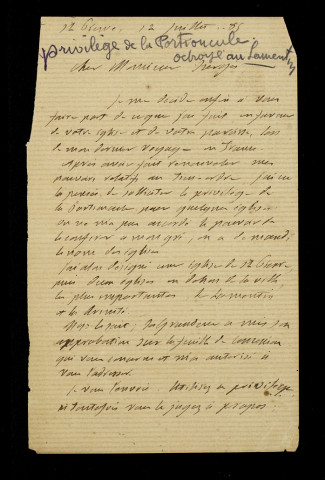 St Pierre, 12 Juillet ..95
privilège de la Portioncule
octroyé au Lamentin
Cher Monsieur
Je me décide enfin à vous
faire part de ce que j'ai fait en faveur
de votre église et de votre paroisse, lors
de mon dernier voyage en France.
Après avoir fait renouveler mes
pouvoirs relatifs au Tiers-ordre j'ai eu
la pensée de solliciter le privilège de
la Portioncule pour quelques églises
on ne m'a pas accordé le pouvoir de
le conférer à mon gré; on a demandé
le nom des églises
J'ai alors désigné une église de St Pierre
puis deux églises en dehors de la ville,
les plus importantes: le Lamentin
et la Trinité.
Sa Grandeur a mis son
approbation sur la feuille de concession
qui vous concerne et m'a autorisé à
vous l'adresser.
Je vous l'envoie Utilisez ce privilège
si toutefois vous le jugez à propos